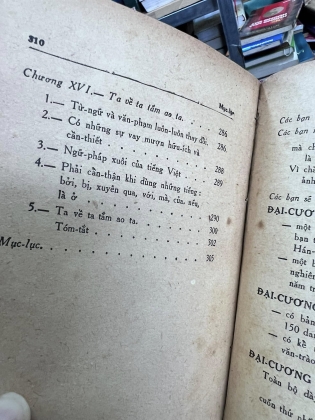 310
Mục-lục
Chương XVI.— Ta về ta tắm ao ta. . . 286
1.— Từ-ngữ và văn-phạm luôn-luôn thay đổi. 286
2.— Có những sự vay mượn hữu-ích và
cần-thiết . . . . . . . . . 288
3.— Ngữ-pháp xuôi của tiếng Việt . . . 289
4.— Phải cần-thận khi dùng những tiếng :
bởi, bị, xuyên qua, với, mà, của, nếu,
là ở . . . . . . . . . . 290
5.— Ta về ta tắm ao ta. . . . . . . 300
Tóm-tắt . . . . . . . . . 302
Mục-lục. . . . . . . . . . . 305
Các bạn
Các bạn
mà ch
là
Vì chă
ảnh
Các bạn sẽ
ĐẠI-CƯƠ
— một
bạn t
Hán-
— một b
nghiên
năm tr
ĐẠI-CƯƠNG
— có bản
150 dan
— có kê
văn-trào
ĐẠI-CƯƠNG
Toàn bộ dầ
cuốn thứ nh